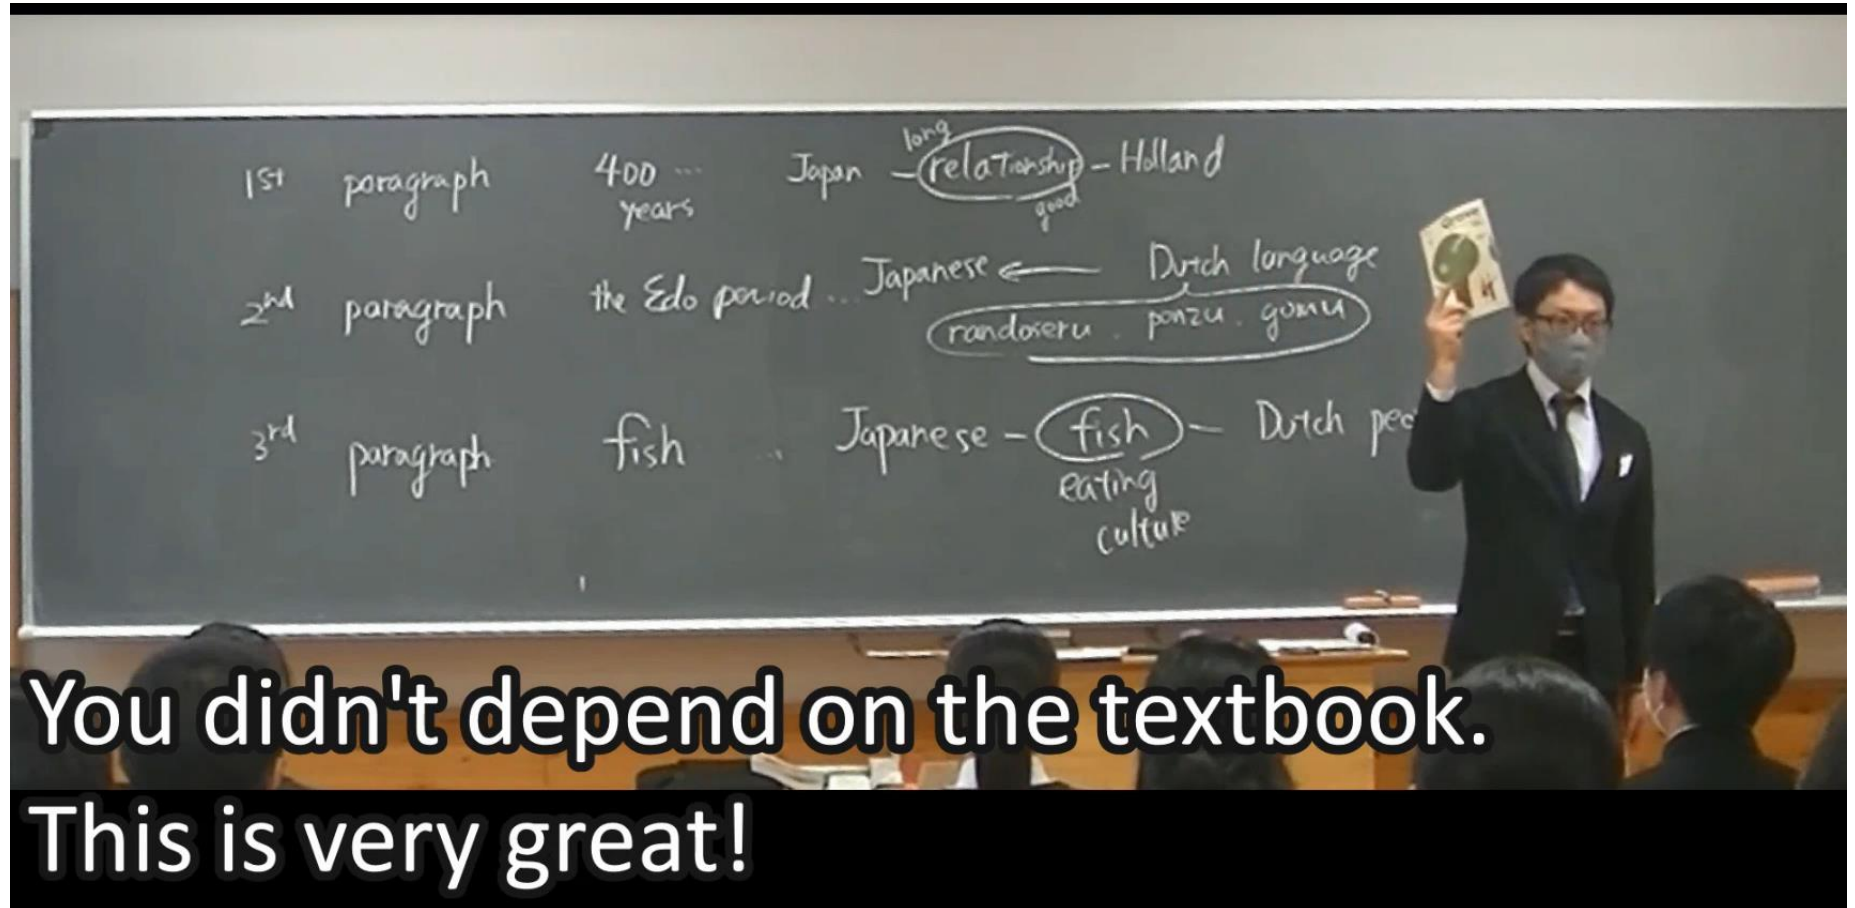 1st paragraph 400 ... years Japan - long relationship good - Holland
2nd paragraph the Edo period ... Japanese ← Dutch language
randoseru . ponzu . gomu
3rd paragraph fish ... Japanese - fish - Dutch peo
eating
culture
You didn't depend on the textbook.
This is very great!